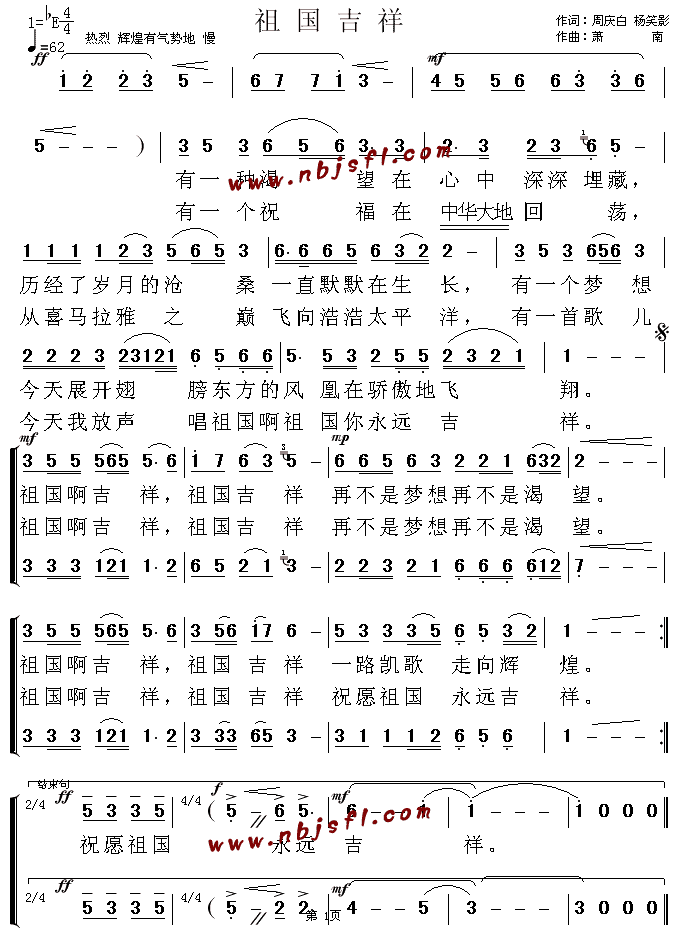 祖国吉祥
1=♭E 4/4
作词：周庆白 杨笑影
♩=62 热烈 辉煌有气势地 慢
作曲：萧 南
ff
1 2 2 3 5 - | 6 7 7 1 3 - | mf 4 5 5 6 6 3 3 6
5 - - - ) | 3 5 3 6 5 6 3. 3 | 2. 3 2 3 6 5 - |
有一种渴 望在 心中 深深 埋藏，
有一个祝 福在 中华大地 回 荡，
www.nbjsfl.com
1 1 1 1 2 3 5 6 5 | 6. 6 6 5 6 3 2 2 - | 3 5 3 656 3
历经了岁月的沧 桑 一直默默在生 长， 有一个梦 想
从喜马拉雅 之 巅 飞向浩浩太平 洋， 有一首歌 儿
2 2 2 3 23121 6 5 6 6 | 5. 5 3 2 5 5 2 3 2 1 | 1 - - -
今天展开翅 膀东方的风 凰在骄傲地飞 翔。
今天我放声 唱祖国啊祖 国你永远 吉 祥。
mf mp
3 5 5 565 5. 6 | 1 7 6 3 5 - | 6 6 5 6 3 2 2 1 632 | 2 - - -
祖国啊吉 祥，祖国吉 祥 再不是梦想再不是渴 望。
祖国啊吉 祥，祖国吉 祥 再不是梦想再不是渴 望。
3 3 3 121 1. 2 | 6 5 2 1 3 - | 2 2 3 2 1 6 6 6 612 | 7 - - -
3 5 5 565 5. 6 | 3 56 17 6 - | 5 3 3 3 5 6 5 3 2 | 1 - - - :||
祖国啊吉 祥，祖国 吉祥 一路凯歌 走向辉 煌。
祖国啊吉 祥，祖国 吉祥 祝愿祖国 永远吉 祥。
3 3 3 121 1. 2 | 3 33 65 3 - | 3 1 1 1 2 6 5 6 5 | 1 - - - :||
结束句
2/4 ff 5 3 3 5 | 4/4 ( f 5 - 6 5. | mf 6 - - 1 | 1 - - - | 1 0 0 0 ||
祝愿祖国 永远 吉 祥。
www.nbjsfl.com
2/4 ff 5 3 3 5 | 4/4 ( 5 - 2 2 | mf 4 - - 5 | 3 - - - | 3 0 0 0 ||
第 1页